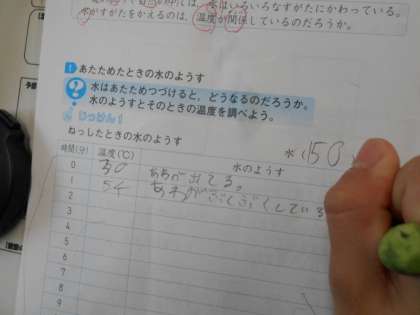 水はいろいろなすがたにかわっている。
水がすがたをかえるのは、温度が関係しているのだろうか。
1 あたためたときの水のようす
水はあたためつづけると、どうなるのだろうか。
水のようすとそのときの温度を調べよう。
じっけん1
ねっしたときの水のようす
水(150
時間(分) 温度(℃) 水のようす
0 30 あわが出てる。
1 54
2
3
4
5
6
7
8
9